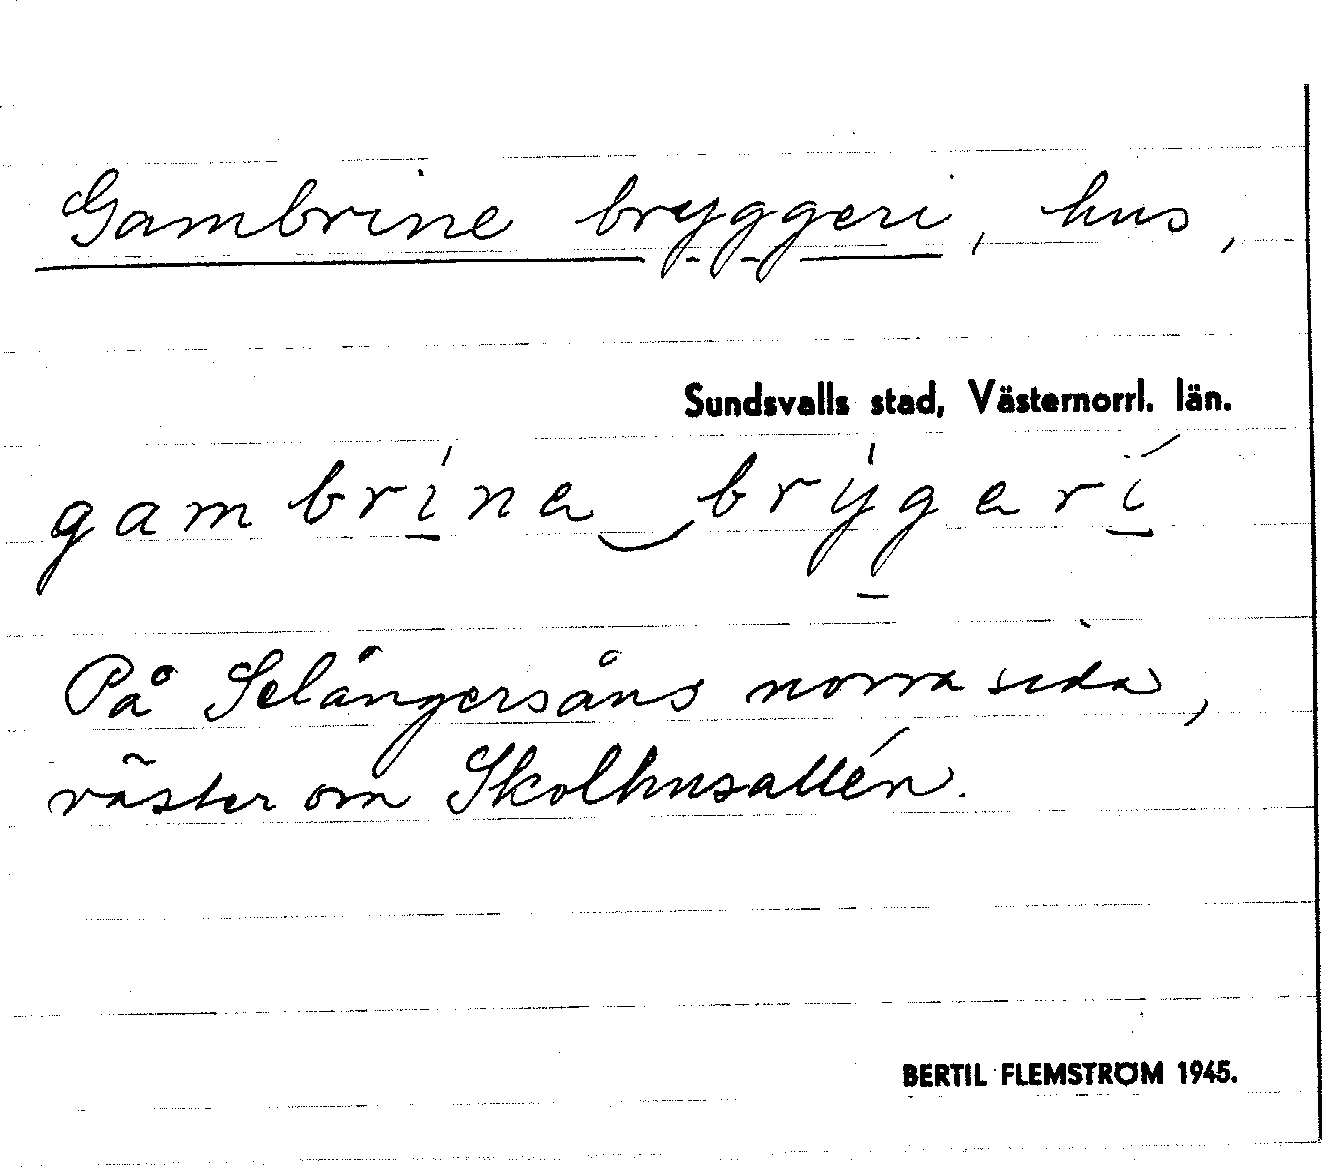 Gambrine bryggeri, hus,
Sundsvalls stad, Västernorrl. län.
gambrina brygarí
På Selångersåns norra sida,
väster om Skolhusallén.
BERTIL FLEMSTRÖM 1945.